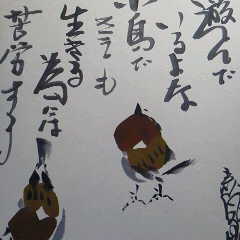 遊んで
いるよな
小鳥だ
とても
生きる
為には
苦労する